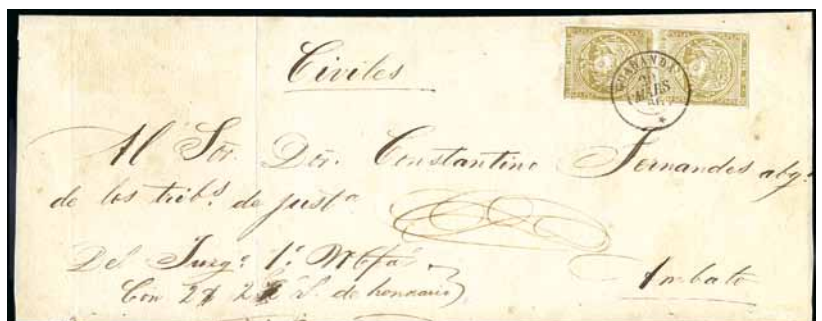 Civiles
GUARANDA
26 MARS
Al Sor. Dor. Constantino Fernandes abgo.
de los tribs. de justa.
Del Juzgo. 1º
Ambato
Con 2 de honorario